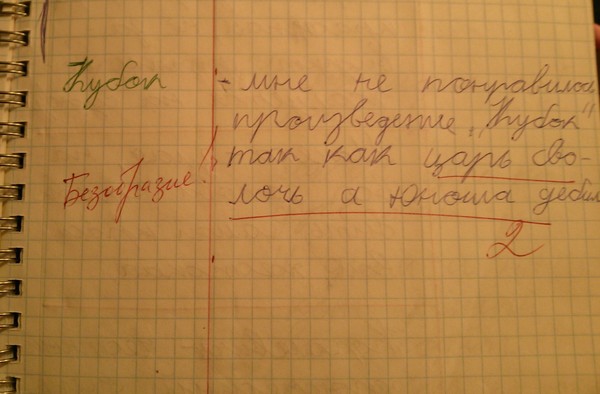 Кубок - мне не понравилось
произведение „Кубок"
так как царь сво-
Безобразие!
лочь а юноша дебил
2